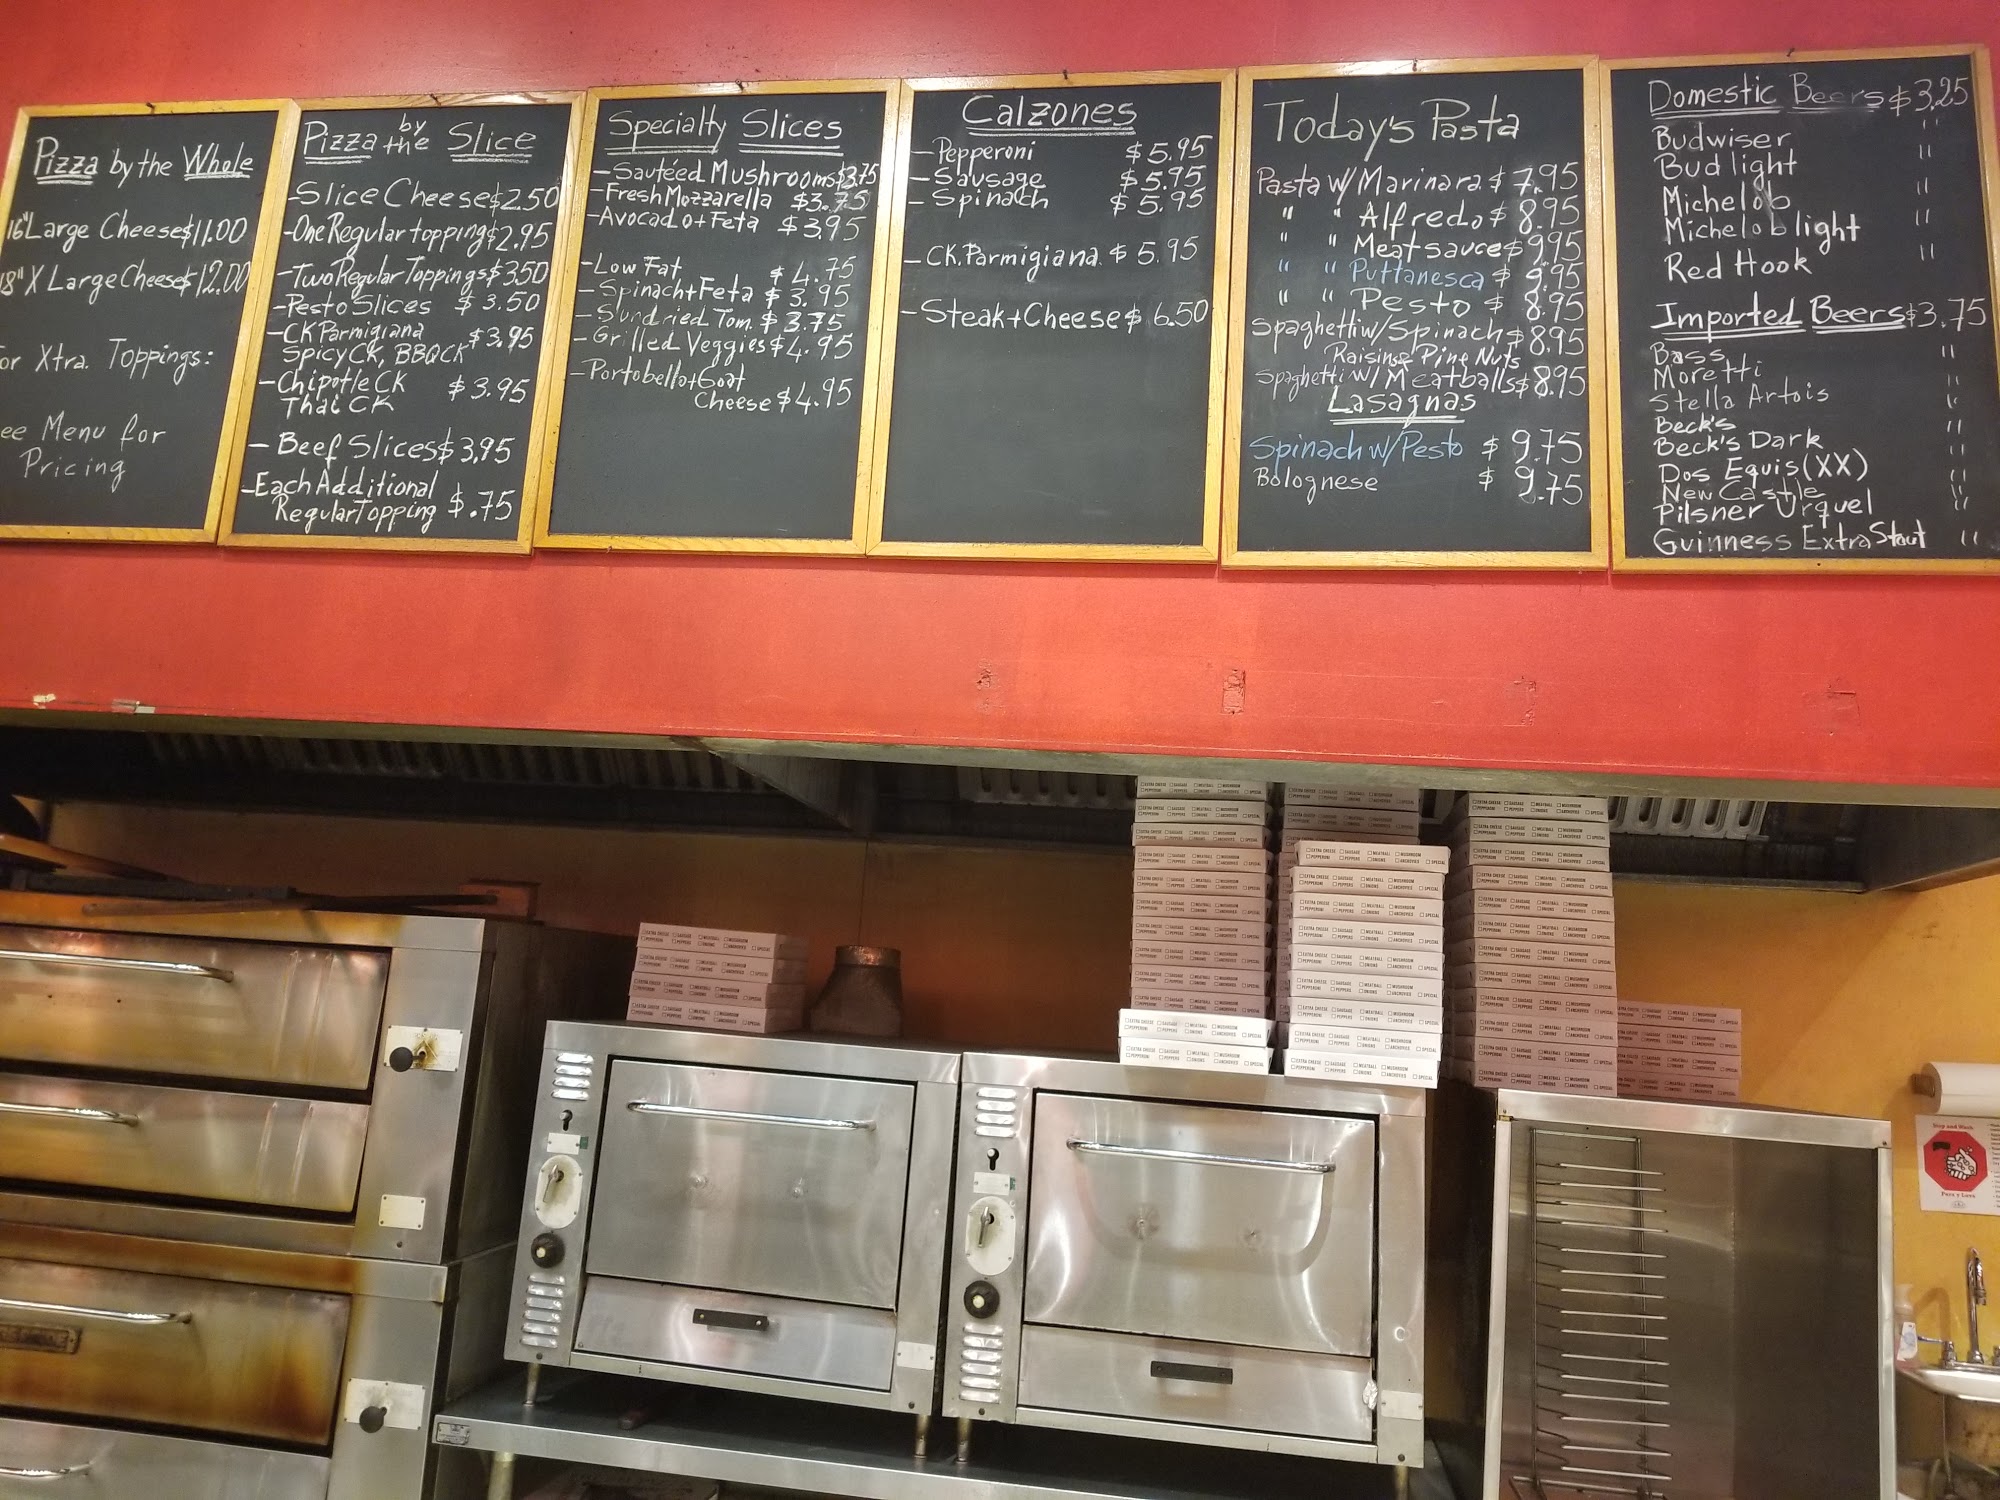 Pizza by the Whole
16" Large Cheese $11.00
18" X Large Cheese $12.00
or Xtra. Toppings:
ee Menu for
Pricing
Pizza by the Slice
- Slice Cheese $2.50
- One Regular topping $2.95
- Two Regular Toppings $3.50
- Pesto Slices $3.50
- CK Parmigiana $3.95
Spicy CK, BBQ CK
- Chipotle CK $3.95
Thai CK
- Beef Slices $3.95
- Each Additional
Regular Topping $.75
Specialty Slices
- Sautéed Mushrooms $3.75
- Fresh Mozzarella $3.75
- Avocado + Feta $3.95
- Low Fat $4.75
- Spinach + Feta $3.95
- Sundried Tom. $3.75
- Grilled Veggies $4.95
- Portobello + Goat
Cheese $4.95
Calzones
- Pepperoni $5.95
- Sausage $5.95
- Spinach $5.95
- CK. Parmigiana $5.95
- Steak + Cheese $6.50
Today's Pasta
Pasta w/ Marinara $7.95
" " Alfredo $8.95
" " Meatsauce $9.95
" " Puttanesca $9.95
" " Pesto $8.95
Spaghetti w/ Spinach $8.95
Raisins & Pine Nuts
Spaghetti w/ Meatballs $8.95
Lasagnas
Spinach w/ Pesto $9.75
Bolognese $9.75
Domestic Beers $3.25
Budwiser "
Bud light "
Michelob "
Michelob light "
Red Hook "
Imported Beers $3.75
Bass "
Moretti "
Stella Artois "
Beck's "
Beck's Dark "
Dos Equis (XX) "
New Castle "
Pilsner Urquel "
Guinness Extra Stout "
EXTRA CHEESE SAUSAGE MEATBALL MUSHROOM
PEPPERONI PEPPERS ONIONS ANCHOVIES SPECIAL
Stop and Wash